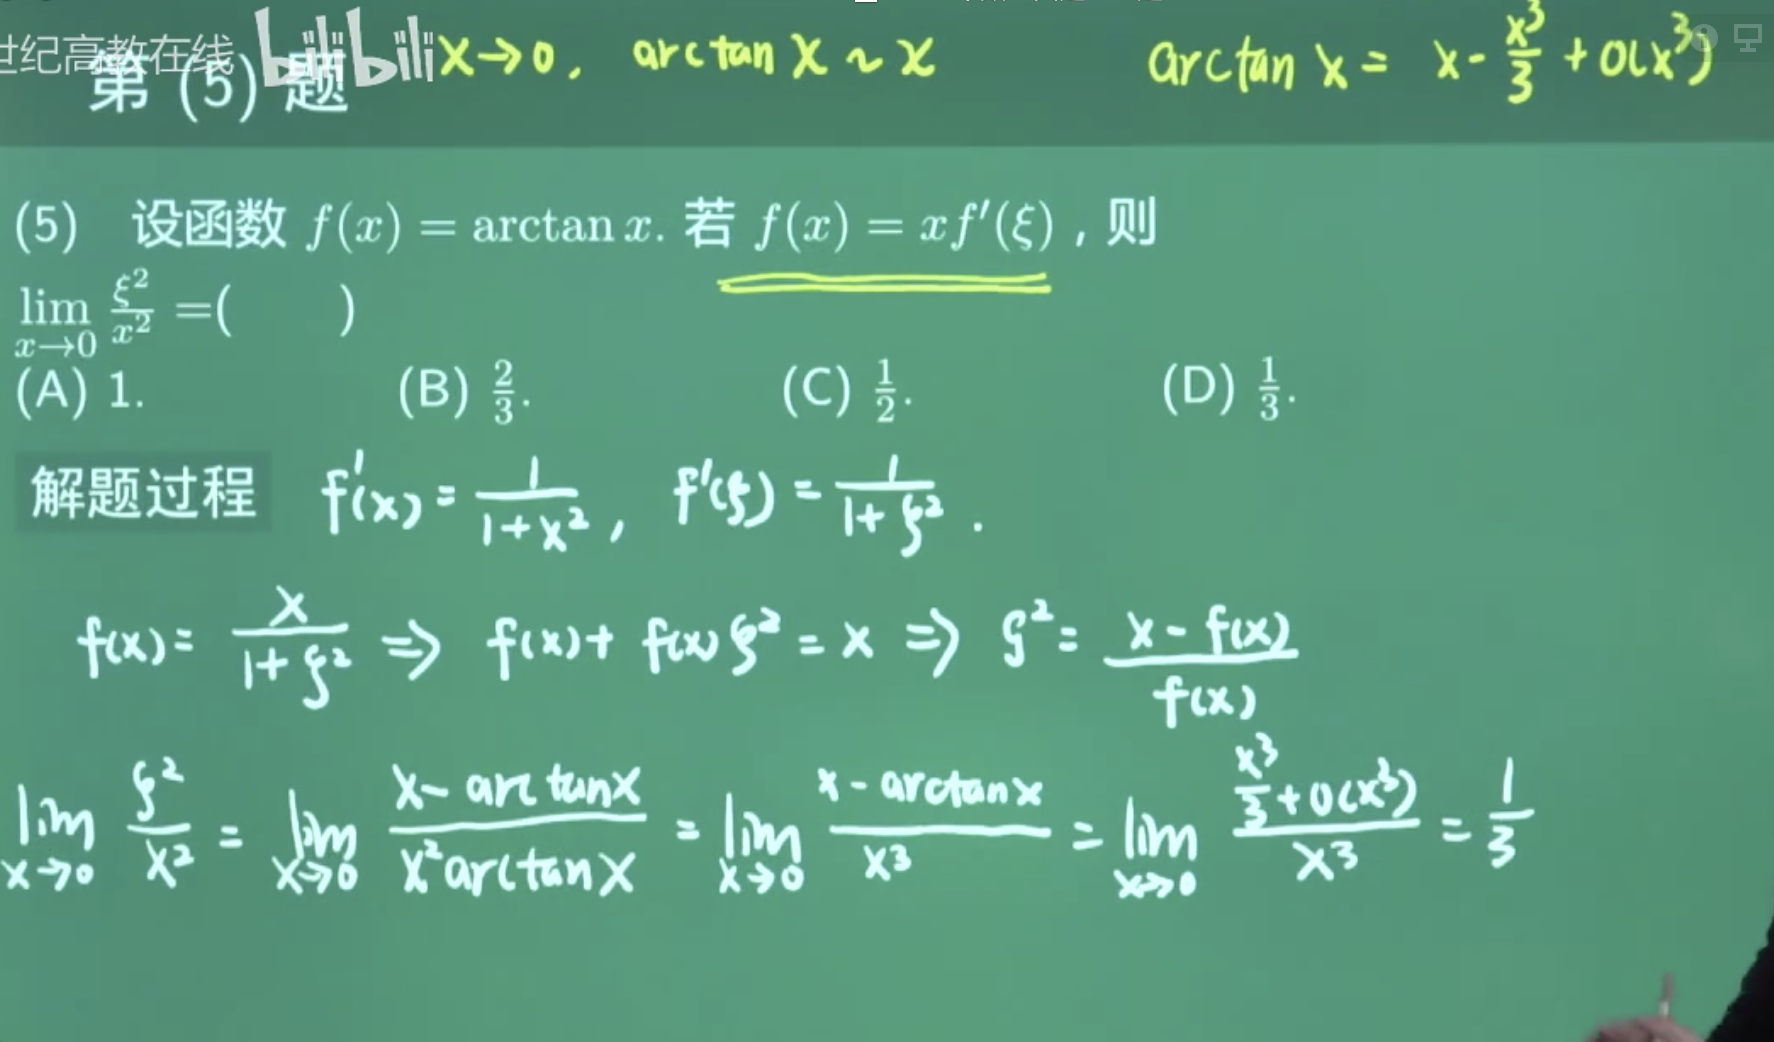 世纪高教在线 bilibili
第 (5) 题 x→0, arctan x ~ x arctan x = x - x³/3 + o(x³)
(5) 设函数 f(x) = arctan x. 若 f(x) = xf′(ξ) , 则
lim x→0 ξ²/x² =( )
(A) 1. (B) 2/3. (C) 1/2. (D) 1/3.
解题过程 f′(x) = 1/(1+x²), f′(ξ) = 1/(1+ξ²).
f(x) = x/(1+ξ²) ⇒ f(x)+ f(x)ξ² = x ⇒ ξ² = (x - f(x))/f(x)
lim x→0 ξ²/x² = lim x→0 (x - arctanx)/(x²arctanx) = lim x→0 (x - arctanx)/x³ = lim x→0 (x³/3 + o(x³))/x³ = 1/3